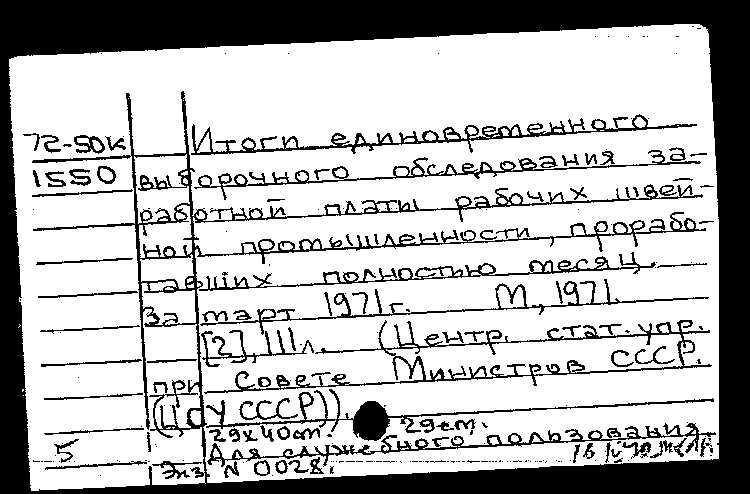 72-50к Итоги единовременного
1550 выборочного обследования за-
работной платы рабочих швей-
ной промышленности, прорабо-
тавших полностью месяц.
За март 1971 г. М., 1971.
[2], 111 л. (Центр. стат. упр.
при Совете Министров СССР.
(ЦСУ СССР)).
29x40 см. 29 см.
5 Для служебного пользования
Экз. N 0028.